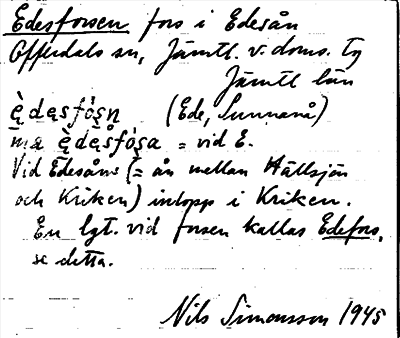 Edesforsen fors i Edesån
Offerdals sn, Jämtl. v. doms. tg
Jämtl län
è̜de̜sfó̜ṣn (Ede, Sunnanå)
mæ è̜de̜sfó̜ṣa = vid E.
Vid Edesåns (= ån mellan Hällsjön
och Kriken) inlopp i Kriken.
En lgt. vid forsen kallas Edefors,
se detta.
Nils Simonsson 1945